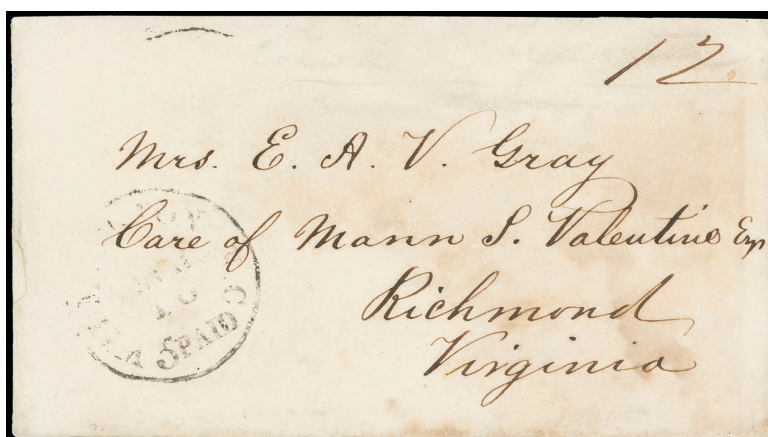 12
Mrs. E. A. V. Gray
Care of Mann S. Valentine Esq
Richmond
Virginia
5 PAID